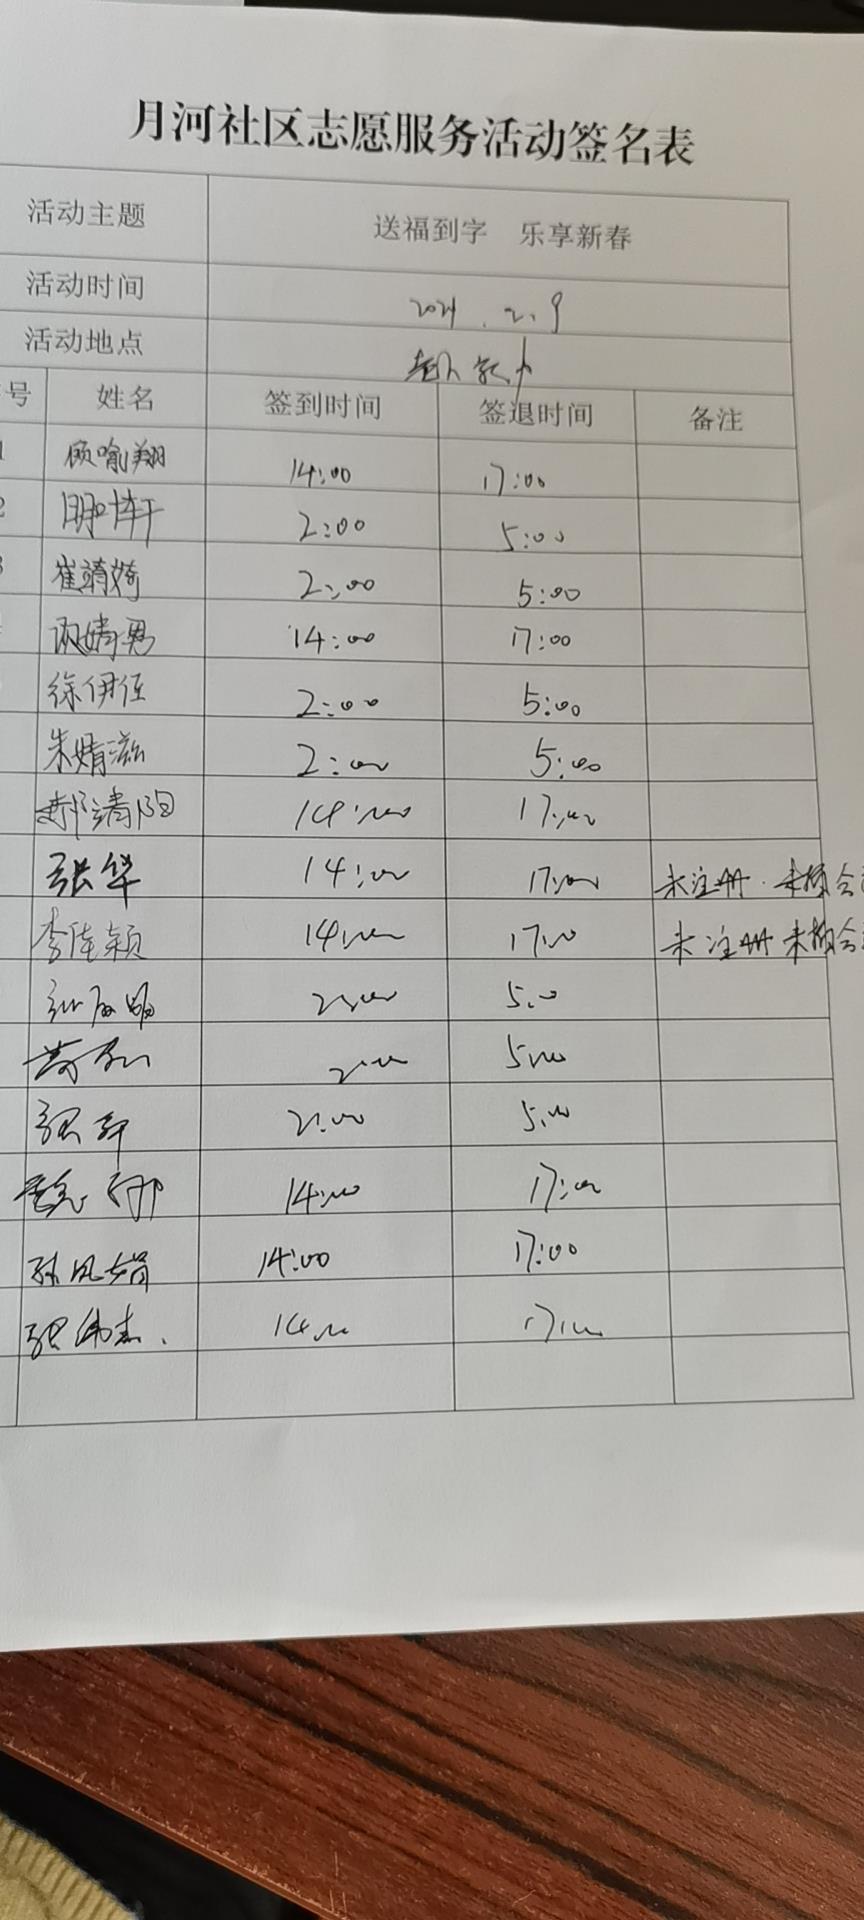 月河社区志愿服务活动签名表
活动主题 送福到字 乐享新春
活动时间 2021.2.9
活动地点
号 姓名 签到时间 签退时间 备注
1 顾喻翔 14:00 17:00
2 2:00 5:00
3 崔靖婍 2:00 5:00
14:00 17:00
徐伊任 2:00 5:00
朱婧滋 2:00 5:00
郝靖阳 14:00 17:00
张华 14:00 17:00 未注册.未
李佳颖 14:00 17:00 未注册 未
2:00 5:00
2:00 5:00
2:00 5:00
14:00 17:00
孙凤娟 14:00 17:00
张伟杰. 14:00 17:00